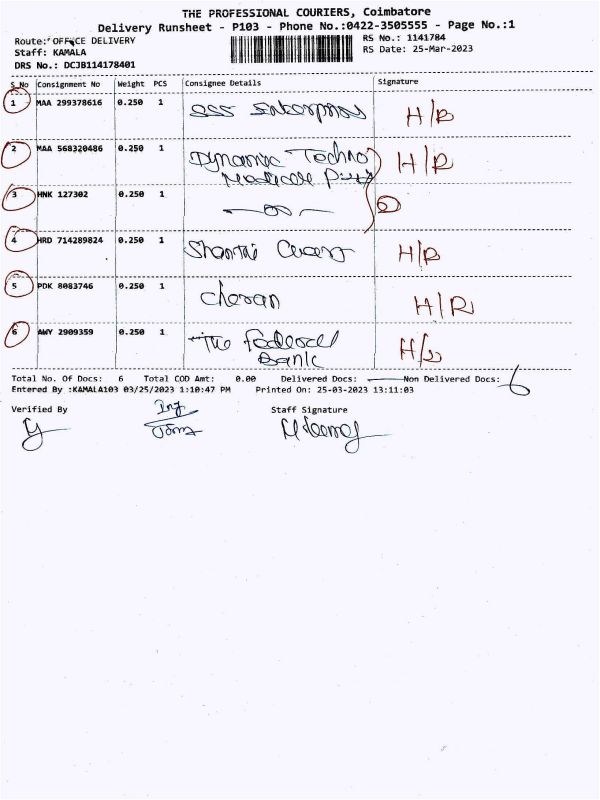 THE PROFESSIONAL COURIERS, Coimbatore
Delivery Runsheet - P103 - Phone No.:0422-3505555 - Page No.:1
Route: OFFICE DELIVERY
RS No.: 1141784
Staff: KAMALA
RS Date: 25-Mar-2023
DRS No.: DCJB114178401
S_No Consignment No Weight PCS Consignee Details Signature
1 MAA 299378616 0.250 1 Enterprises H/R
2 MAA 568320486 0.250 1 Dynamic Techno H/R
Medicals
3 HNK 127302 0.250 1 -do-
4 HRD 714289824 0.250 1 Shanthi H/R
5 PDK 8083746 0.250 1 Cheran H/R
6 AWY 2909359 0.250 1 The Federal
Bank
Total No. Of Docs: 6 Total COD Amt: 0.00 Delivered Docs: — Non Delivered Docs: 6
Entered By :KAMALA103 03/25/2023 1:10:47 PM Printed On: 25-03-2023 13:11:03
Verified By Staff Signature